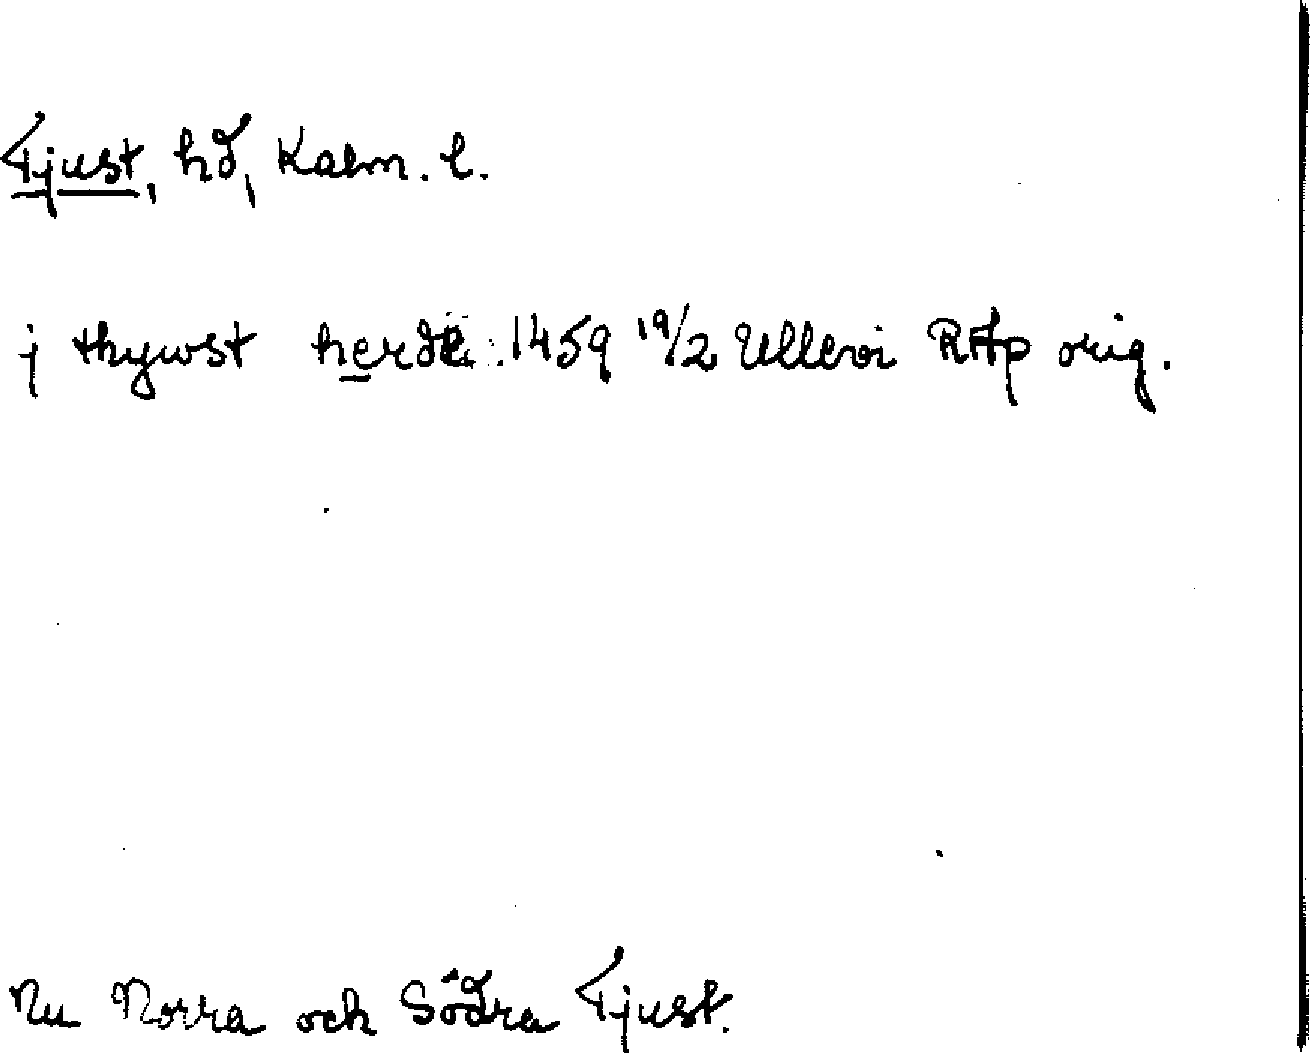 Tjust, hd, Kalm. l.
j thywst herde 1459 19/2 Ullevi RAp orig.
Nu Norra och Södra Tjust.